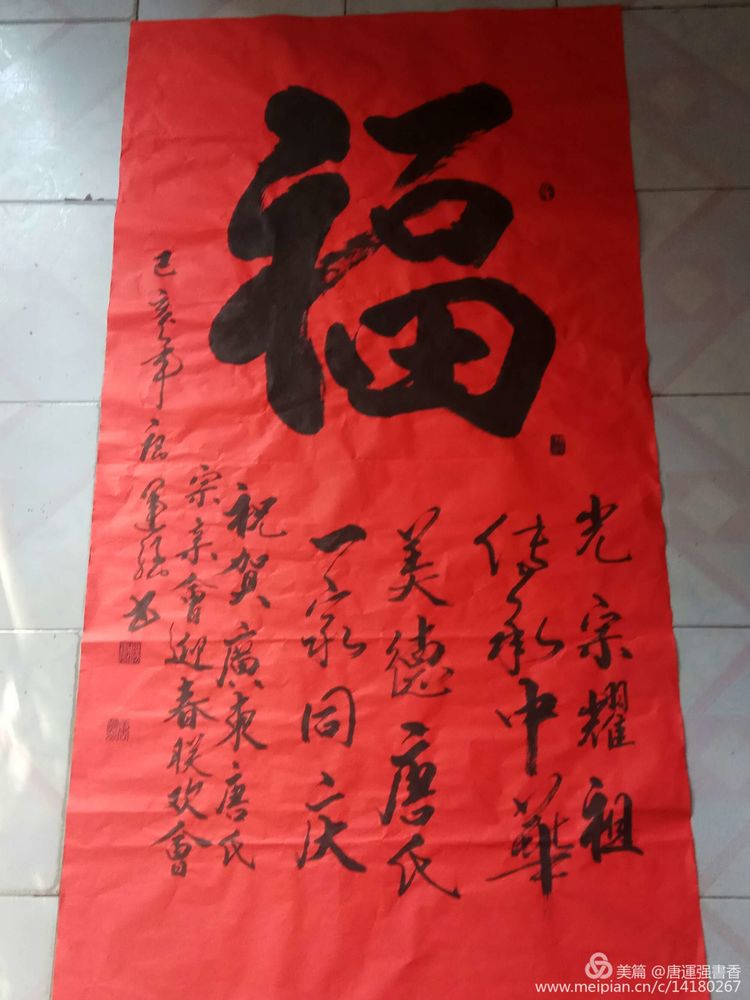 福
光宗耀祖
传承中華
美德唐氏
一家同庆
祝贺廣东唐氏
宗亲會迎春联欢會
己亥年唐運强书
美篇 @唐運强書香
www.meipian.cn/c/14180267